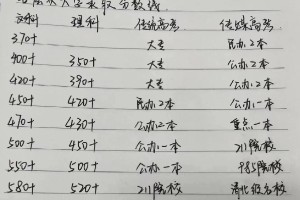 大学录取分数线
文科 理科 传统高考 传媒高考
370+ 大专 民办2本
400+ 350+ 大专 公办2本
420+ 390+ 大专 公办2本
450+ 420+ 民办2本 公办一本
470+ 430+ 公办2本 重点一本
500+ 450+ 公办一本 211院校
550+ 500+ 公办一本 985院校
580+ 520+ 211院校 清北级名校